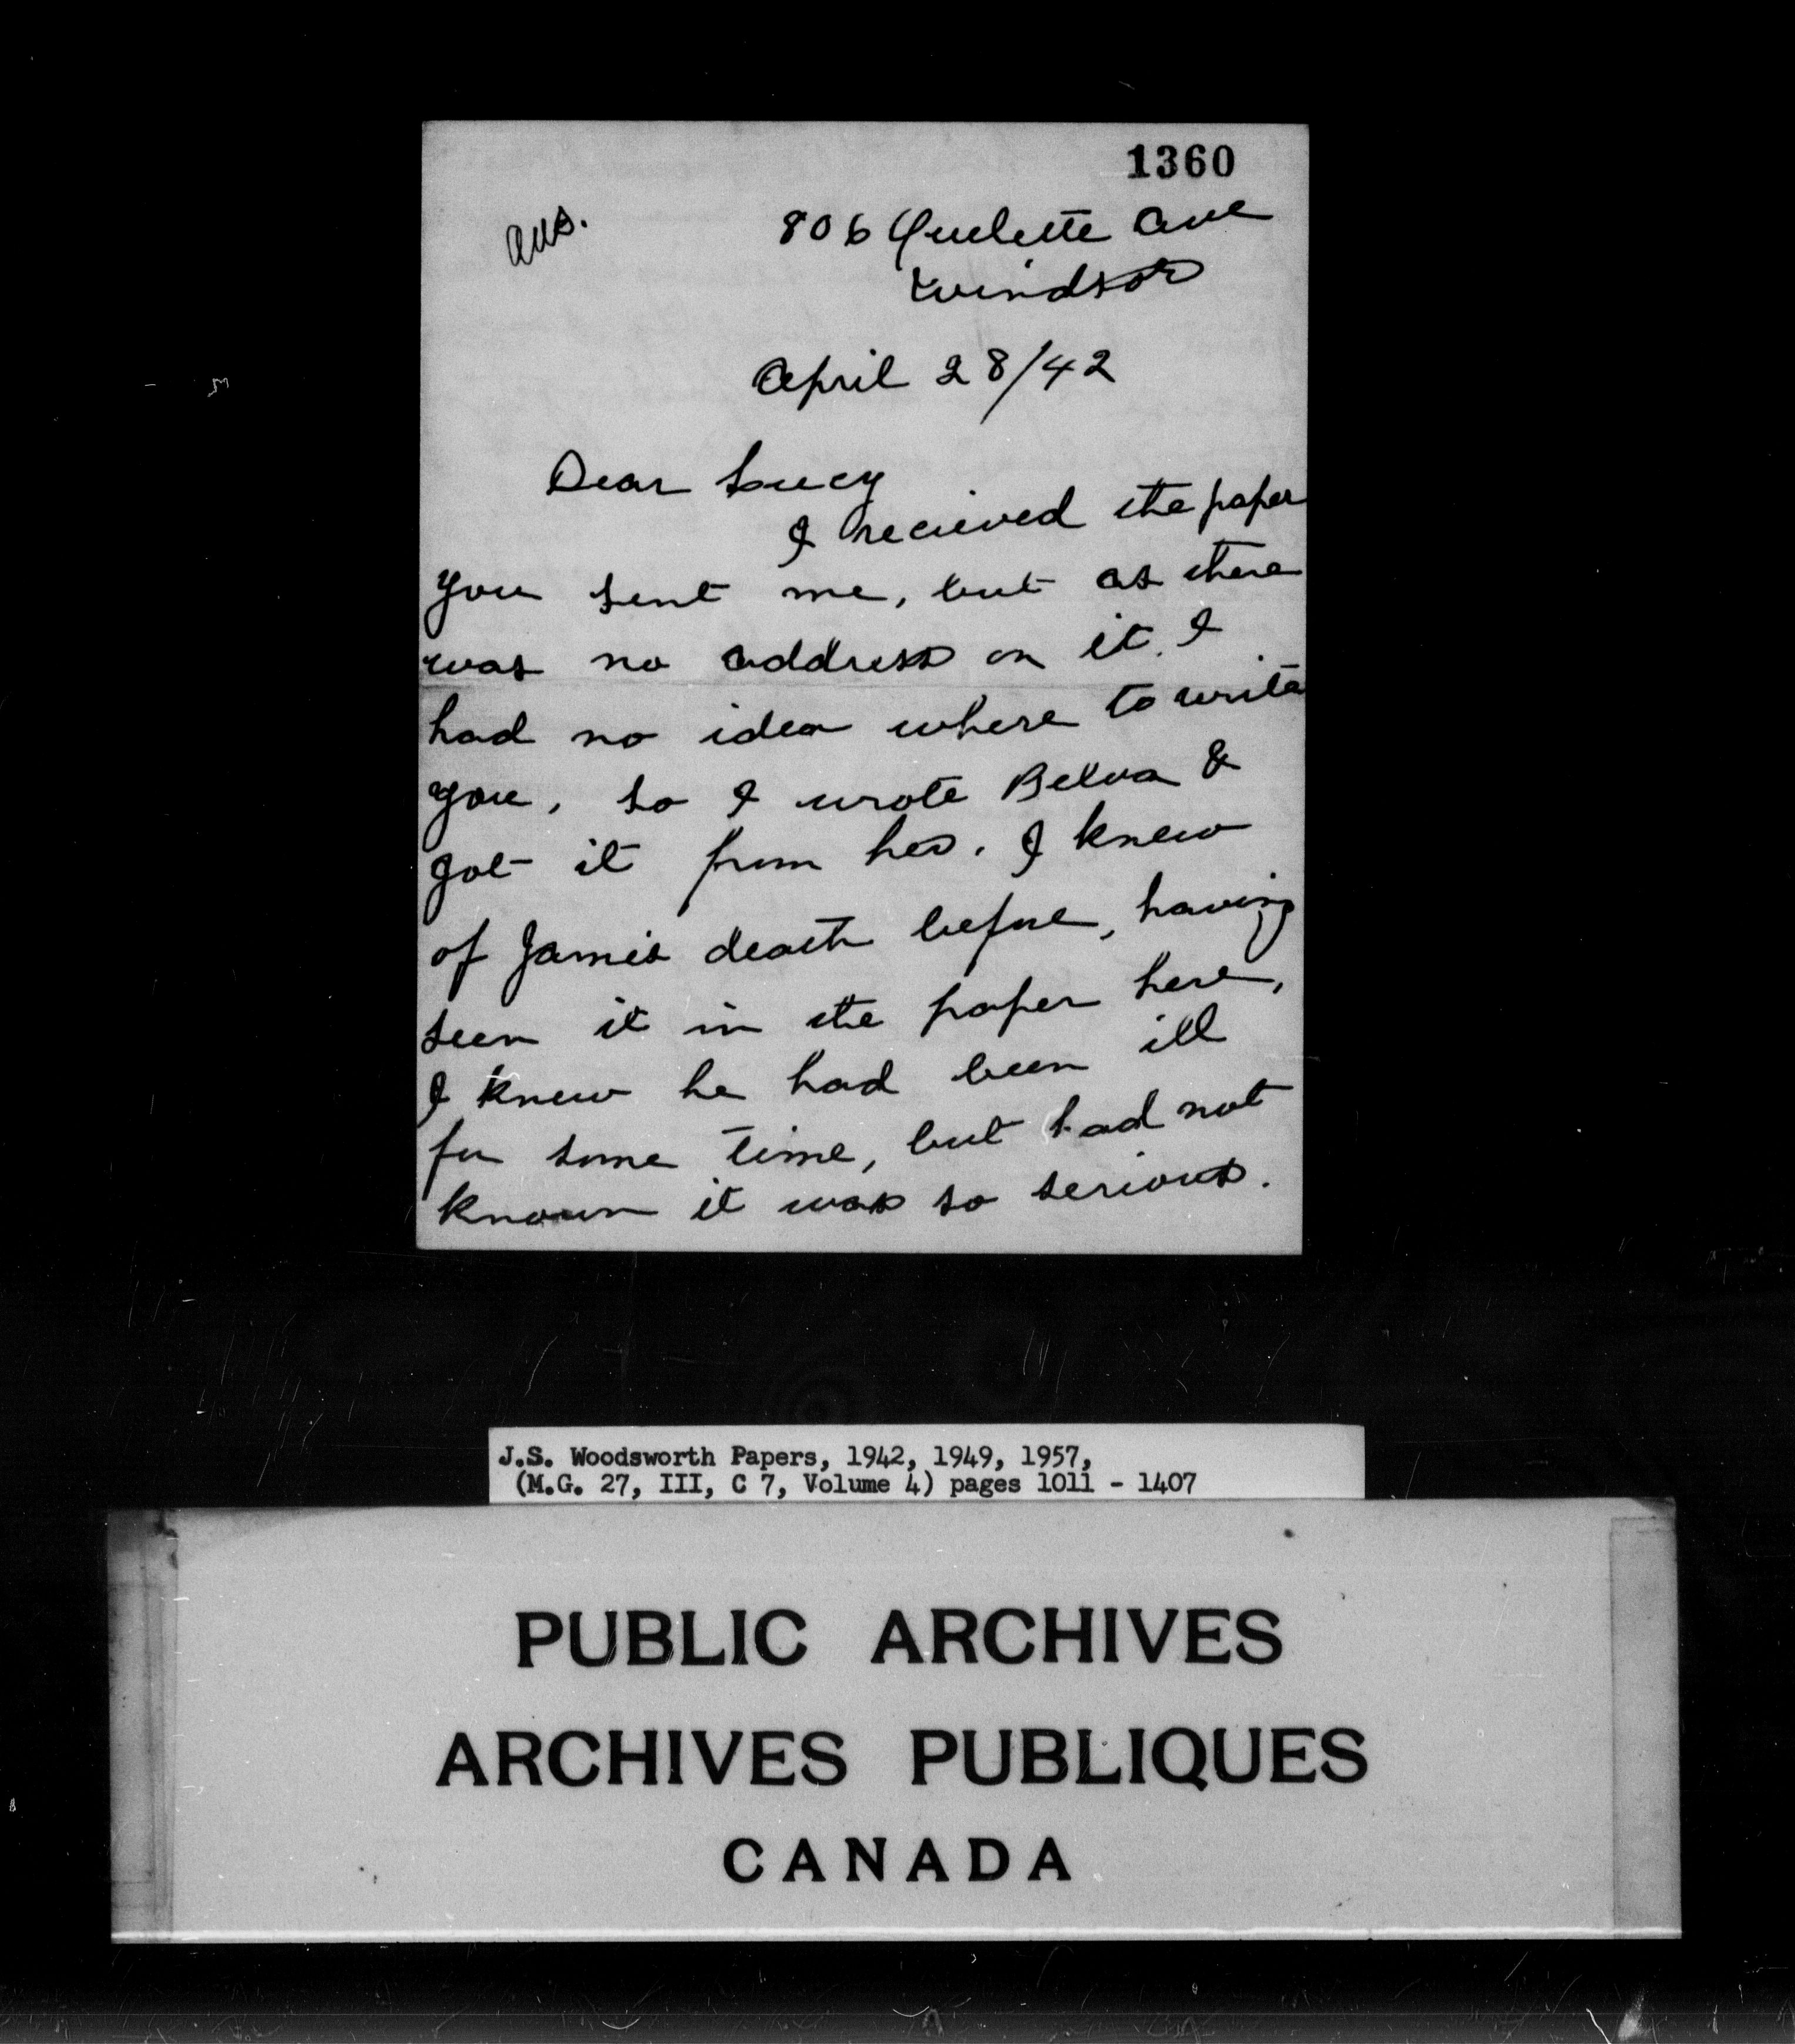 1360
ans.
806 Ouelette Ave
Windsor
April 28/42
Dear Lucy
I recieved the paper
you sent me, but as there
was no address on it. I
had no idea where to write
you, so I wrote Belva &
got it from her. I knew
of James death before, having
seen it in the paper here,
I knew he had been ill
for some time, but had not
known it was so serious.
J.S. Woodsworth Papers, 1942, 1949, 1957,
(M.G. 27, III, C 7, Volume 4) pages 1011 - 1407
PUBLIC ARCHIVES
ARCHIVES PUBLIQUES
CANADA